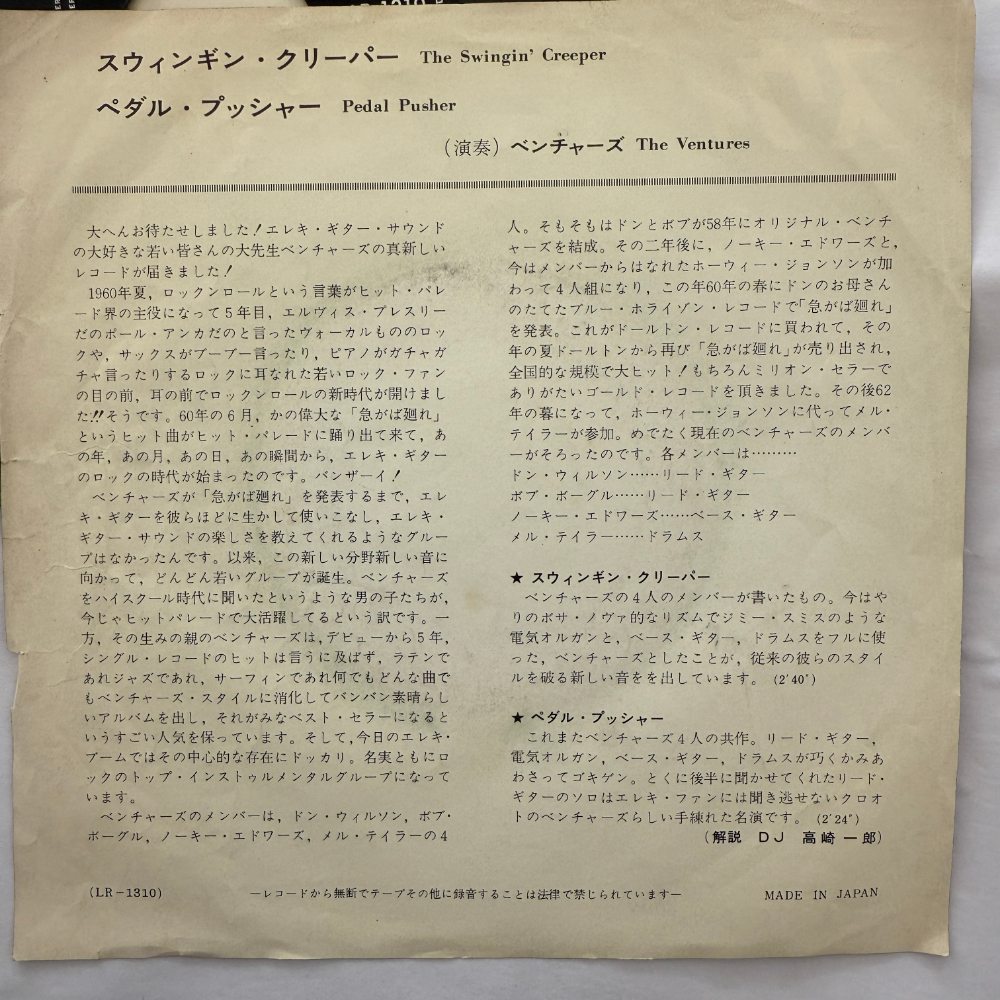 スウィンギン・クリーパー The Swingin' Creeper
ペダル・プッシャー Pedal Pusher
(演奏) ベンチャーズ The Ventures
大へんお待たせしました!エレキ・ギター・サウンド
の大好きな若い皆さんの大先生ベンチャーズの真新しい
レコードが届きました!
1960年夏,ロックンロールという言葉がヒット・パレ
ード界の主役になって5年目,エルヴィス・プレスリー
だのポール・アンカだのと言ったヴォーカルもののロッ
クや,サックスがブーブー言ったり,ピアノがガチャガ
チャ言ったりするロックに耳なれた若いロック・ファン
の目の前,耳の前でロックンロールの新時代が開けまし
た!!そうです。60年の6月,かの偉大な「急がば廻れ」
というヒット曲がヒット・パレードに踊り出て来て,あ
の年,あの月,あの日,あの瞬間から,エレキ・ギター
のロックの時代が始まったのです。バンザーイ!
ベンチャーズが「急がば廻れ」を発表するまで,エレ
キ・ギターを彼らほどに生かして使いこなし,エレキ・
ギター・サウンドの楽しさを教えてくれるようなグルー
プはなかったんです。以来,この新しい分野新しい音に
向かって,どんどん若いグループが誕生。ベンチャーズ
をハイスクール時代に聞いたというような男の子たちが,
今じゃヒットパレードで大活躍してるという訳です。一
方,その生みの親のベンチャーズは,デビューから5年,
シングル・レコードのヒットは言うに及ばず,ラテンで
あれジャズであれ,サーフィンであれ何でもどんな曲で
もベンチャーズ・スタイルに消化してバンバン素晴らし
いアルバムを出し,それがみなベスト・セラーになると
いうすごい人気を保っています。そして,今日のエレキ・
ブームではその中心的な存在にドッカリ。名実ともにロ
ックのトップ・インストゥルメンタルグループになって
います。
ベンチャーズのメンバーは,ドン・ウィルソン,ボブ・
ボーグル,ノーキー・エドワーズ,メル・テイラーの4
人。そもそもはドンとボブが58年にオリジナル・ベンチ
ャーズを結成。その二年後に,ノーキー・エドワーズと,
今はメンバーからはなれたホーウィー・ジョンソンが加
わって4人組になり,この年60年の春にドンのお母さん
のたてたブルー・ホライゾン・レコードで「急がば廻れ」
を発表。これがドールトン・レコードに買われて,その
年の夏ドールトンから再び「急がば廻れ」が売り出され,
全国的な規模で大ヒット!もちろんミリオン・セラーで
ありがたいゴールド・レコードを頂きました。その後62
年の暮になって,ホーウィー・ジョンソンに代ってメル・
テイラーが参加。めでたく現在のベンチャーズのメンバ
ーがそろったのです。各メンバーは………
ドン・ウィルソン……リード・ギター
ボブ・ボーグル……リード・ギター
ノーキー・エドワーズ……ベース・ギター
メル・テイラー……ドラムス
★ スウィンギン・クリーパー
ベンチャーズの4人のメンバーが書いたもの。今はや
りのボサ・ノヴァ的なリズムでジミー・スミスのような
電気オルガンと,ベース・ギター,ドラムスをフルに使
った,ベンチャーズとしたことが,従来の彼らのスタイ
ルを破る新しい音をを出しています。(2'40")
★ ペダル・プッシャー
これまたベンチャーズ4人の共作。リード・ギター,
電気オルガン,ベース・ギター,ドラムスが巧くかみあ
わさってゴキゲン。とくに後半に聞かせてくれたリード・
ギターのソロはエレキ・ファンには聞き逃せないクロオ
トのベンチャーズらしい手練れた名演です。(2'24")
(解説 DJ 高崎一郎)
(LR-1310) ーレコードから無断でテープその他に録音することは法律で禁じられていますー MADE IN JAPAN